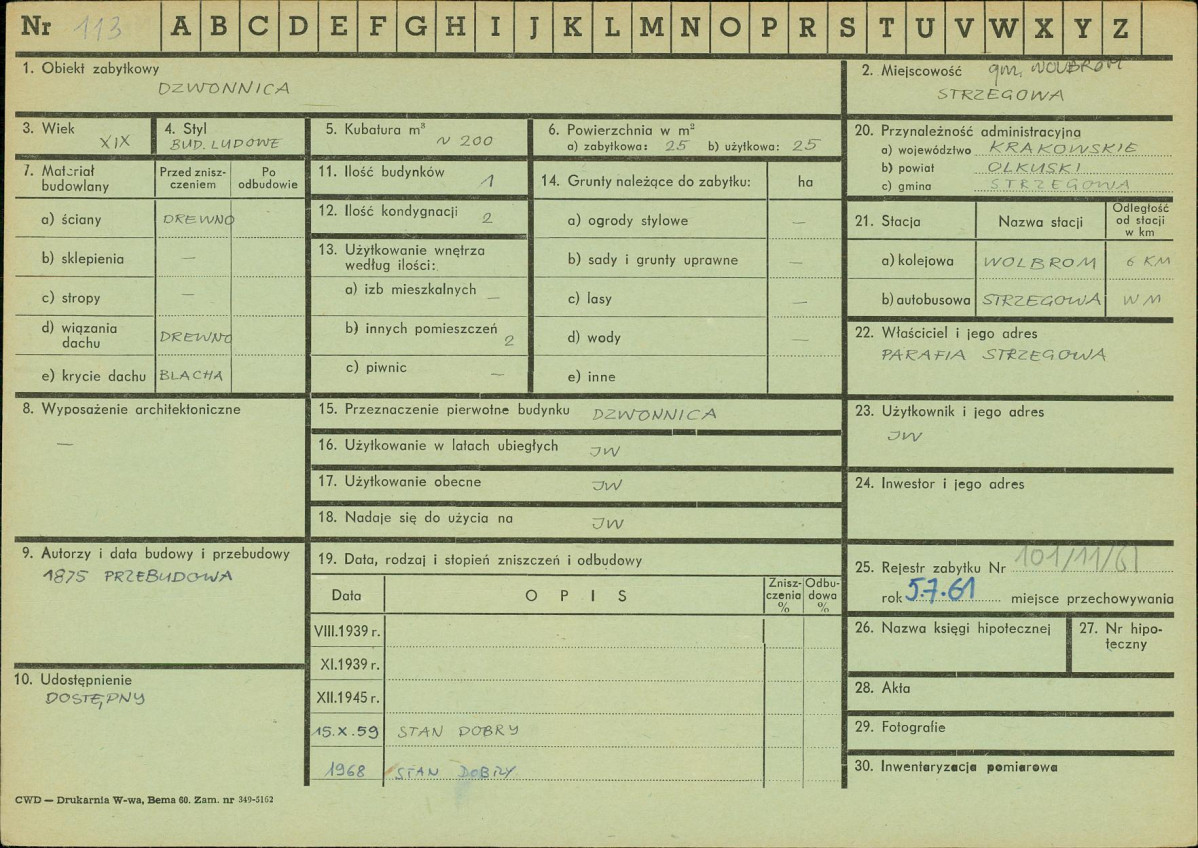 Nr 113 A B C D E F G H I J K L M N O P R S T U V W X Y Z
1. Obiekt zabytkowy
DZWONNICA
2. Miejscowość gm. WOLBROM
STRZEGOWA
3. Wiek
XIX
4. Styl
BUD. LUDOWE
5. Kubatura m³
~ 200
6. Powierzchnia w m²
a) zabytkowa: 25 b) użytkowa: 25
7. Materiał budowlany
Przed zniszczeniem
Po odbudowie
a) ściany DREWNO
b) sklepienia —
c) stropy —
d) wiązania dachu DREWNO
e) krycie dachu BLACHA
8. Wyposażenie architektoniczne
—
9. Autorzy i data budowy i przebudowy
1875 PRZEBUDOWA
10. Udostępnienie
DOSTĘPNY
11. Ilość budynków
1
12. Ilość kondygnacji 2
13. Użytkowanie wnętrza
według ilości:
a) izb mieszkalnych —
b) innych pomieszczeń
2
c) piwnic —
14. Grunty należące do zabytku: ha
a) ogrody stylowe —
b) sady i grunty uprawne —
c) lasy —
d) wody —
e) inne
15. Przeznaczenie pierwotne budynku DZWONNICA
16. Użytkowanie w latach ubiegłych JW
17. Użytkowanie obecne JW
18. Nadaje się do użycia na JW
19. Data, rodzaj i stopień zniszczeń i odbudowy
Data OPIS Zniszczenia % Odbudowa %
VIII.1939 r.
XI.1939 r.
XII.1945 r.
15.X.59 STAN DOBRY
1968 STAN DOBRY
20. Przynależność administracyjna
a) województwo KRAKOWSKIE
b) powiat OLKUSKI
c) gmina STRZEGOWA
21. Stacja Nazwa stacji Odległość od stacji w km
a) kolejowa WOLBROM 6 KM
b) autobusowa STRZEGOWA W M
22. Właściciel i jego adres
PARAFIA STRZEGOWA
23. Użytkownik i jego adres
JW
24. Inwestor i jego adres
25. Rejestr zabytku Nr 101/11/61
rok 5.7.61 miejsce przechowywania
26. Nazwa księgi hipotecznej
27. Nr hipoteczny
28. Akta
29. Fotografie
30. Inwentaryzacja pomiarowa
CWD — Drukarnia W-wa, Bema 60. Zam. nr 349-5162